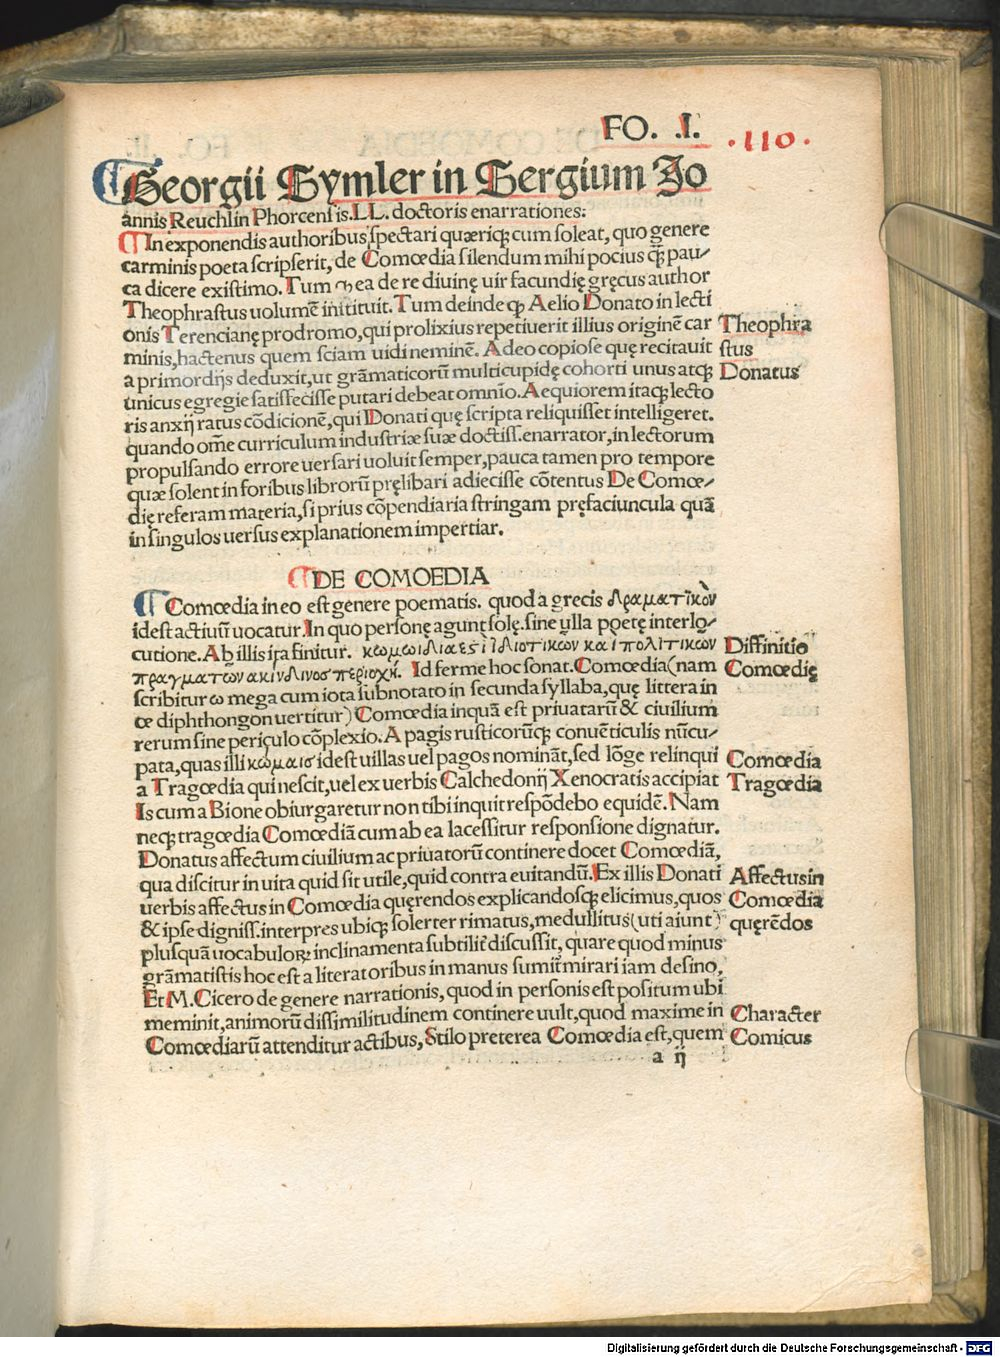 FO. .I.
.110.
Georgii Symler in Sergium Jo
annis Reuchlin Phorcensis.LL. doctoris enarrationes:
In exponendis authoribus spectari quæriqꝫ cum soleat, quo genere
carminis poeta scripserit, de Comœdia silendum mihi pocius qꝫ̃ pau/
ca dicere existimo. Tum ꝙ ea de re diuinę uir facundię gręcus author
Theophrastus uolumẽ intituit. Tum deinde qꝫ Aelio Donato in lecti
onis Terencianę prodromo, qui prolixius repetiuerit illius originẽ car
minis, hactenus quem sciam uidi neminẽ. Adeo copiose quę recitauit
a primordijs deduxit, ut grãmaticorũ multicupidę cohorti unus atqꝫ
unicus egregie satisfecisse putari debeat omnio. Aequiorem itaqꝫ lecto
ris anxij ratus cõdicionẽ, qui Donati quę scripta reliquisset intelligeret.
quando om̃e curriculum industriæ suæ doctiss. enarrator, in lectorum
propulsando errore uersari uoluit semper, pauca tamen pro tempore
quæ solent in foribus librorũ pręlibari adiecisse cõtentus De Comœ/
dię referam materia, si prius cõpendiaria stringam pręfaciuncula quã
in singulos uersus explanationem impertiar.
Theophra
stus
Donatus
DE COMOEDIA
Comœdia in eo est genere poematis. quod a grecis δραματῖκὸν
idest actiuũ uocatur. In quo personę agunt solę. sine ulla poetę interlo/
cutione. Ab illis ita finitur. κωμωιδια εςὶ ἰδιοτικων καὶ πολιτικων
πραγματων ακίνδινος περιοχή. Id ferme hoc sonat. Comœdia (nam
scribitur ω mega cum iota subnotato in secunda syllaba, quę littera in
œ diphthongon uertitur) Comœdia inquã est priuatarũ & ciuilium
rerum sine periculo cõplexio. A pagis rusticorũqꝫ conuẽticulis nũcu/
pata, quas illi κωμαισ idest uillas uel pagos nominãt, sed lõge relinqui
a Tragœdia qui nescit, uel ex uerbis Calchedonij Xenocratis accipiat
Is cum a Bione obiurgaretur non tibi inquit respõdebo equidẽ. Nam
neqꝫ tragœdia Comœdiã cum ab ea lacessitur responsione dignatur.
Donatus affectum ciuilium ac priuatorũ continere docet Comœdiã,
qua discitur in uita quid sit utile, quid contra euitandũ. Ex illis Donati
uerbis affectus in Comœdia quęrendos explicandosqꝫ elicimus, quos
& ipse digniss. interpres ubiqꝫ solerter rimatus, medullitus (uti aiunt)
plusquã uocabuloꝝ inclinamenta subtiliẽ discussit, quare quod minus
grãmatistis hoc est a literatoribus in manus sumit̃ mirari iam desino,
Et M. Cicero de genere narrationis, quod in personis est positum ubi
meminit, animorũ dissimilitudinem continere uult, quod maxime in
Comœdiarũ attenditur actibus, Stilo preterea Comœdia est, quem
Diffinitio
Comœdię
Comœdia
Tragœdia
Affectus in
Comœdia
quęrẽdos
Character
Comicus
a ij
Digitalisierung gefördert durch die Deutsche Forschungsgemeinschaft - DFG